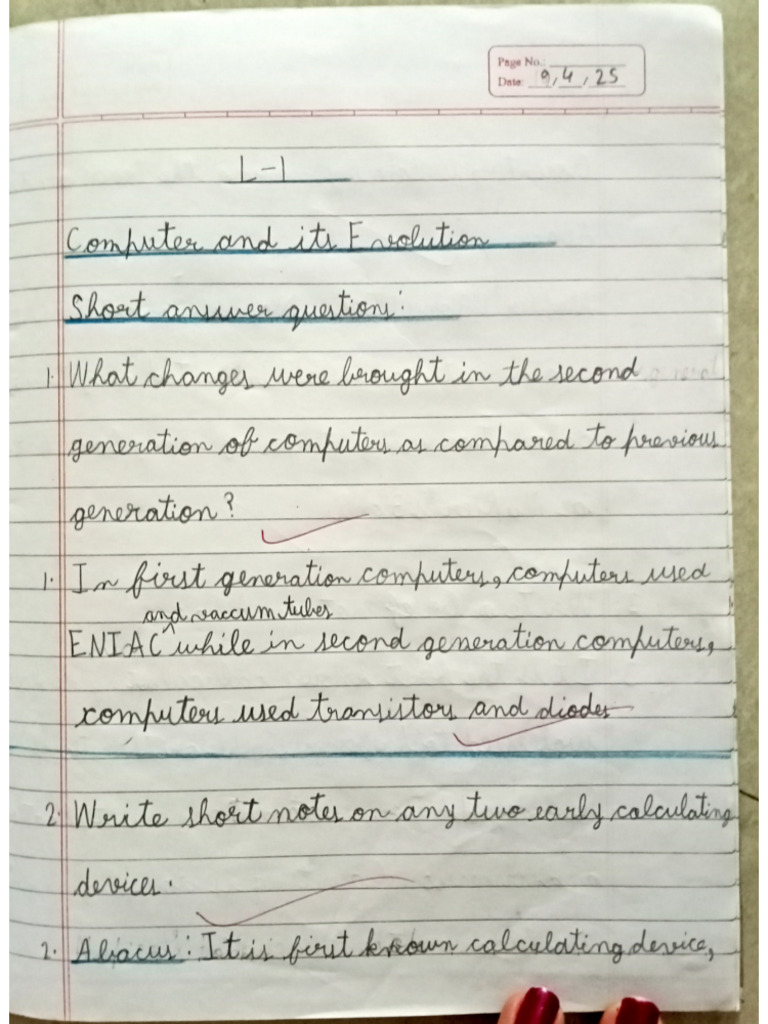 Page No.:
Date: 9, 4, 25
L-1
Computer and its Evolution
Short answer questions:
1. What changes were brought in the second
generation of computers as compared to previous
generation?
1. In first generation computers, computers used
and vaccum tubes
ENIAC ^ while in second generation computers,
computers used transistors and diodes
2. Write short notes on any two early calculating
devices.
2. Abacus: It is first known calculating device,